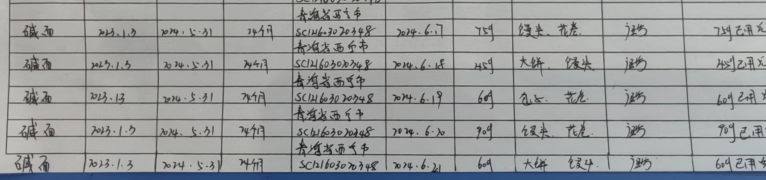 青海省西宁市
碱面 2023.1.3 2024.5.31 24个月 SC12603020348 2024.6.17 75g 馒头. 花卷 75g已用完
青海省西宁市
碱面 2023.1.3 2024.5.31 24个月 SC12603020348 2024.6.18 45g 大饼. 馒头 45g已用
青海省西宁市
碱面 2023.13 2024.5.31 24个月 SC12603020348 2024.6.19 60g 花卷 60g已用
青海省西宁市
碱面 2023.1.3 2024.5.31 24个月 SC12603020348 2024.6.20 90g 馒头. 花卷 90g已用
青海省西宁市
碱面 2023.1.3 2024.5.31 24个月 SC12603020348 2024.6.21 60g 大饼 60g已用